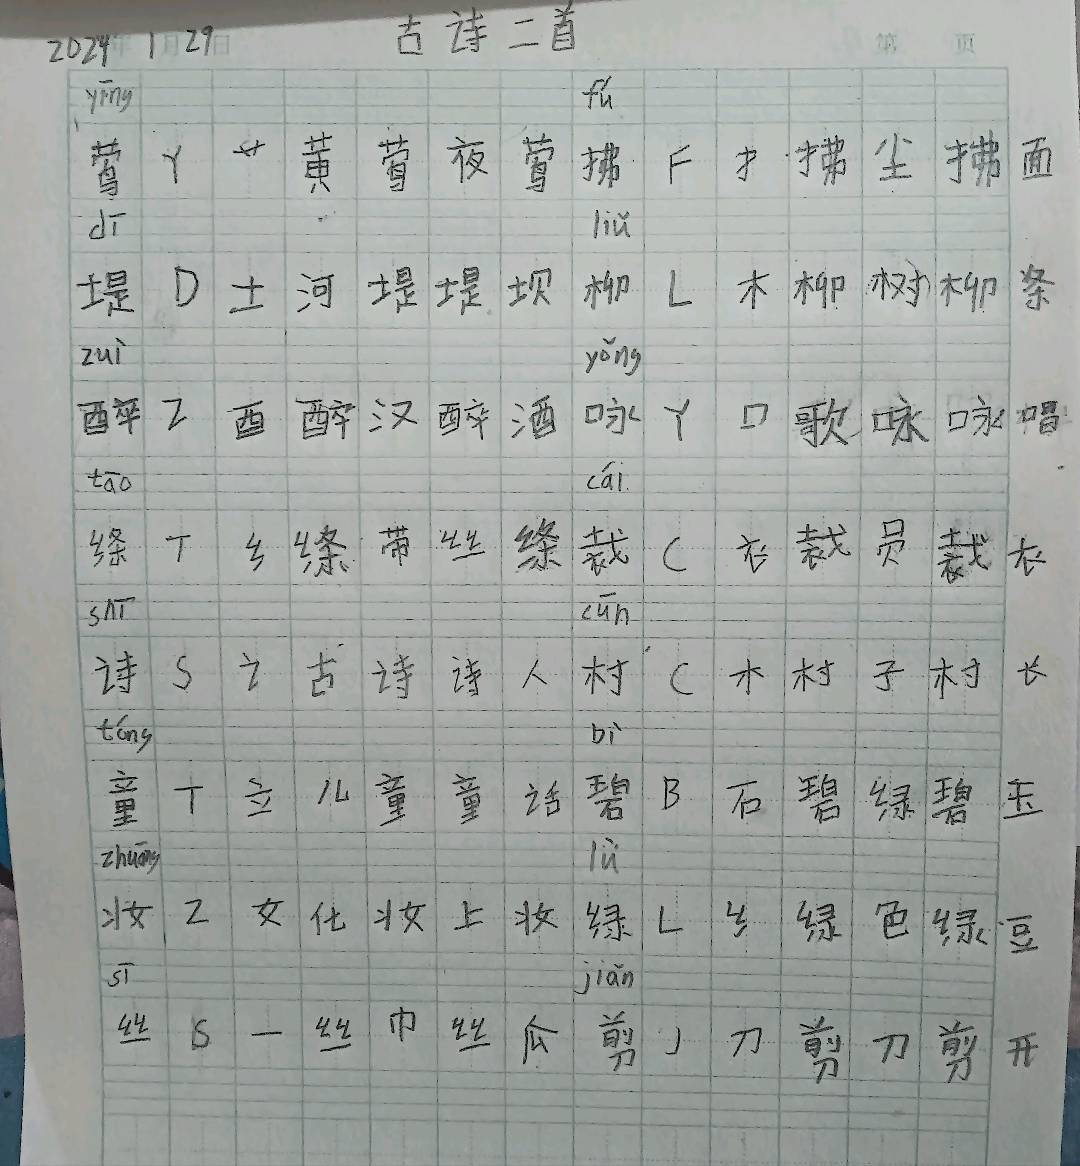 2024年1月29日 古诗二首 第 页
yīng fú
莺 Y 艹 黄 莺 夜 莺 拂 F 扌 拂 尘 拂 面
dī liǔ
堤 D 土 河 堤 堤 坝 柳 L 木 柳 树 柳 条
zuì yǒng
醉 Z 酉 醉 汉 醉 酒 咏 Y 口 歌 咏 咏 唱
tāo cái
绦 T 纟 绦 带 丝 绦 裁 C 衣 裁 员 裁 衣
shī cūn
诗 S 讠 古 诗 诗 人 村 C 木 村 子 村 长
tóng bì
童 T 立 儿 童 童 话 碧 B 石 碧 绿 碧 玉
zhuāng lǜ
妆 Z 女 化 妆 上 妆 绿 L 纟 绿 色 绿 豆
sī jiǎn
丝 S 一 丝 巾 丝 瓜 剪 J 刀 剪 刀 剪 开